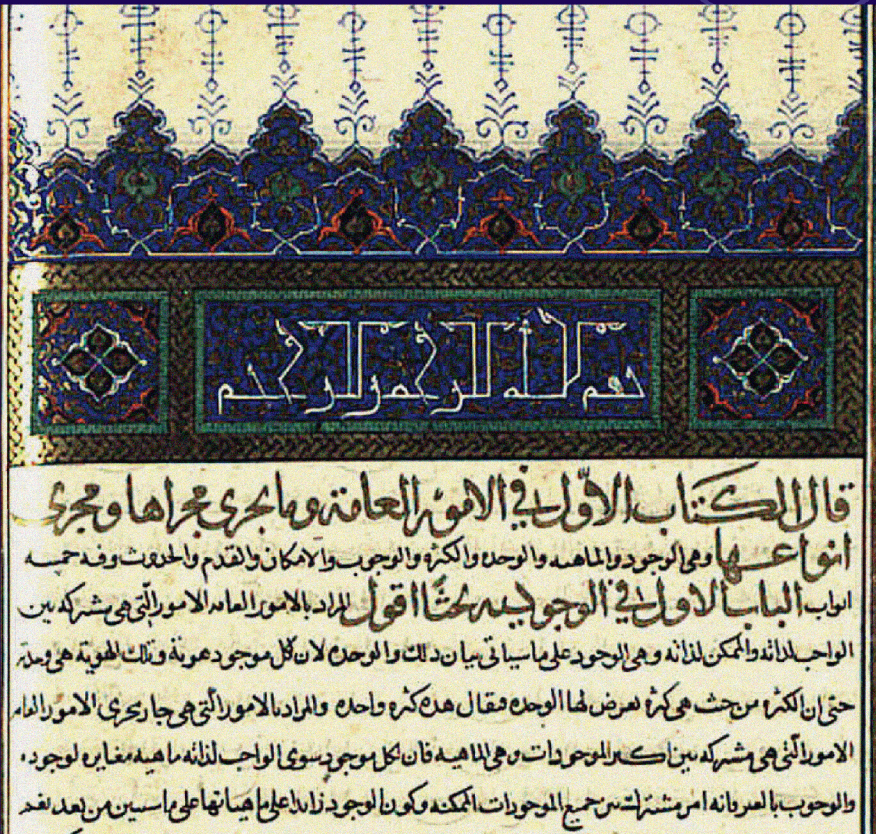 بسم الله الرحمن الرحيم
قال الكتاب الاول في الامور العامة وما يجري مجراها ومجرى
انواعها وهي الوجود والماهيه والوحده والكثرة والوجوب والامكان والقدم والحدوث وفيه خمسه
ابواب الباب الاول في الوجود وفيه اقول المراد بالامور العامه الامور الّتي هي مشتركه بين
الواجب لذاته والممكن لذاته وهي الوجود على ما سياتي بيان ذلك والوحده لان كل موجود هوية وتلك الهوية هي وحدته
حتى ان الكثره من حيث هي كثرة تعرض لها الوحده فيقال هذه كثره واحده والمراد بالامور الّتي هي جارية مجرى الامور العامه
الامور الّتي هي مشتركه بين اكثر الموجودات وهي الماهيه فان كل موجود سوى الواجب لذاته ماهيه مغايره لوجوده
والوجوب بالغير فانه امر مشترك بين جميع الموجودات الممكنه وكون الوجود زايدا على ماهياتها على ما سيبين من بعد